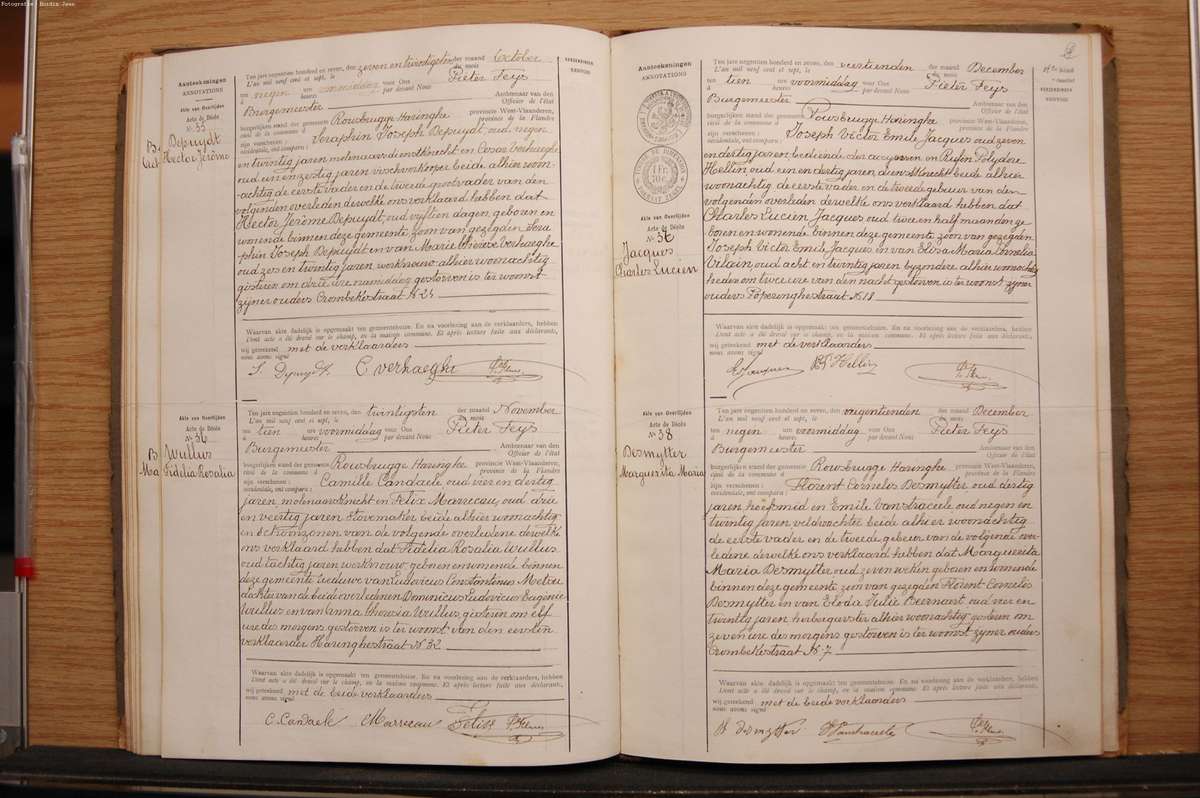 Fotografie: Bordin Jean
Aanteekeningen
ANNOTATIONS
Akte van Overlijden
Acte de Décès
N. 33
Depuydt
Hector Jérôme
Ten jare negentien honderd en zeven, den zeven en twintigsten der maand October
L'an mil neuf cent et sept, le du mois
ten negen ure voormiddag voor Ons Pieter Feys
à heures par devant Nous
Burgemeester Ambtenaar van den
Officier de l'état
burgerlijken stand der gemeente Rousbrugge Haringhe provincie West-Vlaanderen,
civil de la commune d province de la Flandre
zijn verschenen: Seraphin Joseph Depuydt oud negen
occidentale, ont comparu:
en twintig jaren molenaarsdienstknecht en Cesar Verhaeghe
oud een en zestig jaren vischverkooper beide alhier woon-
achtig de eerste vader en de tweede grootvader van den
volgenden overleden dewelke ons verklaard hebben dat
Hector Jérôme Depuydt, oud vyftien dagen, geboren en
wonende binnen deze gemeente zoon van gezegden Sera
phin Joseph Depuydt en van Marie Thérèse Verhaeghe
oud zes en twintig jaren werkvrouw alhier woonachtig
gisteren om drie ure namiddag gestorven is ter woonst
zyner ouders Crombekestraat N. 25
Waarvan akte dadelijk is opgemaakt ten gemeentehuize. En na voorlezing aan de verklaarders, hebben
Dont acte a été dressé sur le champ, en la maison commune. Et après lecture faite aux déclarants,
wij geteekend met de verklaarders
nous avons signé
S. Depuydt C Verhaeghe
Akte van Overlijden
Acte de Décès
N. 34
Wullus
Fidelia Rosalia
Ten jare negentien honderd en zeven, den twintigsten der maand November
L'an mil neuf cent et sept, le du mois
ten tien ure voormiddag voor Ons Pieter Feys
à heures par devant Nous
Burgemeester Ambtenaar van den
Officier de l'état
burgerlijken stand der gemeente Rousbrugge Haringhe provincie West-Vlaanderen,
civil de la commune d province de la Flandre
zijn verschenen: Camille Candaele oud vier en dertig
occidentale, ont comparu:
jaren, molenaarsknecht en Felix Marrecau, oud drie
en veertig jaren stovemaker beide alhier woonachtig
en schoonzonen van de volgende overledene dewelke
ons verklaard hebben dat Fidelia Rosalia Wullus
oud tachtig jaren werkvrouw geboren en wonende binnen
deze gemeente weduwe van Ludovicus Constantinus
dochter van de beide overledenen Dominicus Ludovicus Eugenie
Wullus en van Anna Theresia Wullus, gisteren om elf
ure des morgens gestorven is ter woonst van den eersten
verklaarder Haringhestraat N. 32
Waarvan akte dadelijk is opgemaakt ten gemeentehuize. En na voorlezing aan de verklaarders, hebben
Dont acte a été dressé sur le champ, en la maison commune. Et après lecture faite aux déclarants,
wij geteekend met de beide verklaarders
nous avons signé
C. Candaele Marrecau Felix
Aanteekeningen
ANNOTATIONS
Akte van Overlijden
Acte de Décès
N. 36
Jacques
Charles Lucien
Ten jare negentien honderd en zeven, den veertienden der maand December
L'an mil neuf cent et sept, le du mois
ten tien ure voormiddag voor Ons Pieter Feys
à heures par devant Nous
Burgemeester Ambtenaar van den
Officier de l'état
burgerlijken stand der gemeente Rousbrugge Haringhe provincie West-Vlaanderen,
civil de la commune d province de la Flandre
zijn verschenen: Joseph Victor Emile Jacques oud zeven
occidentale, ont comparu:
en dertig jaren bediende der accynsen en Rufin Polydore
Hellin oud een en dertig jaren, dienstknecht beide alhier
woonachtig de eerste vader en de tweede gebuur van den
volgenden overleden dewelke ons verklaard hebben dat
Charles Lucien Jacques oud twee en half maanden ge
boren en wonende binnen deze gemeente zoon van gezegden
Joseph Victor Emile Jacques en van Elisa Maria Cornelia
Vilain, oud acht en twintig jaren byzondere alhier woonachtig
heden om twee ure van den nacht gestorven is ter woonst zyner
ouders Poperinghestraat N. 18
Waarvan akte dadelijk is opgemaakt ten gemeentehuize. En na voorlezing aan de verklaarders, hebben
Dont acte a été dressé sur le champ, en la maison commune. Et après lecture faite aux déclarants,
wij geteekend met de verklaarders
nous avons signé
Jacques Hellin
Akte van Overlijden
Acte de Décès
N. 38
Desmytter
Marguerita Maria
Ten jare negentien honderd en zeven, den negentienden der maand December
L'an mil neuf cent et sept, le du mois
ten negen ure voormiddag voor Ons Pieter Feys
à heures par devant Nous
Burgemeester Ambtenaar van den
Officier de l'état
burgerlijken stand der gemeente Rousbrugge Haringhe provincie West-Vlaanderen,
civil de la commune d province de la Flandre
zijn verschenen: Florent Cornelis Desmytter oud dertig
occidentale, ont comparu:
jaren hoefsmid en Emile Vanstraceele oud negen en
twintig jaren veldwachter beide alhier woonachtig
de eerste vader en de tweede gebuur van de volgende over-
ledene dewelke ons verklaard hebben dat Marguerita
Maria Desmytter oud zeven weken geboren en wonende
binnen deze gemeente zoon van gezegden Florent Cornelis
Desmytter en van Elodie Julie Beernaert oud vier en
twintig jaren herbergierster alhier woonachtig gisteren om
zeven ure des morgens gestorven is ter woonst zyner ouders
Crombekestraat N. 7
Waarvan akte dadelijk is opgemaakt ten gemeentehuize. En na voorlezing aan de verklaarders, hebben
Dont acte a été dressé sur le champ, en la maison commune. Et après lecture faite aux déclarants,
wij geteekend met de beide verklaarders
nous avons signé
Desmytter Vanstraceele